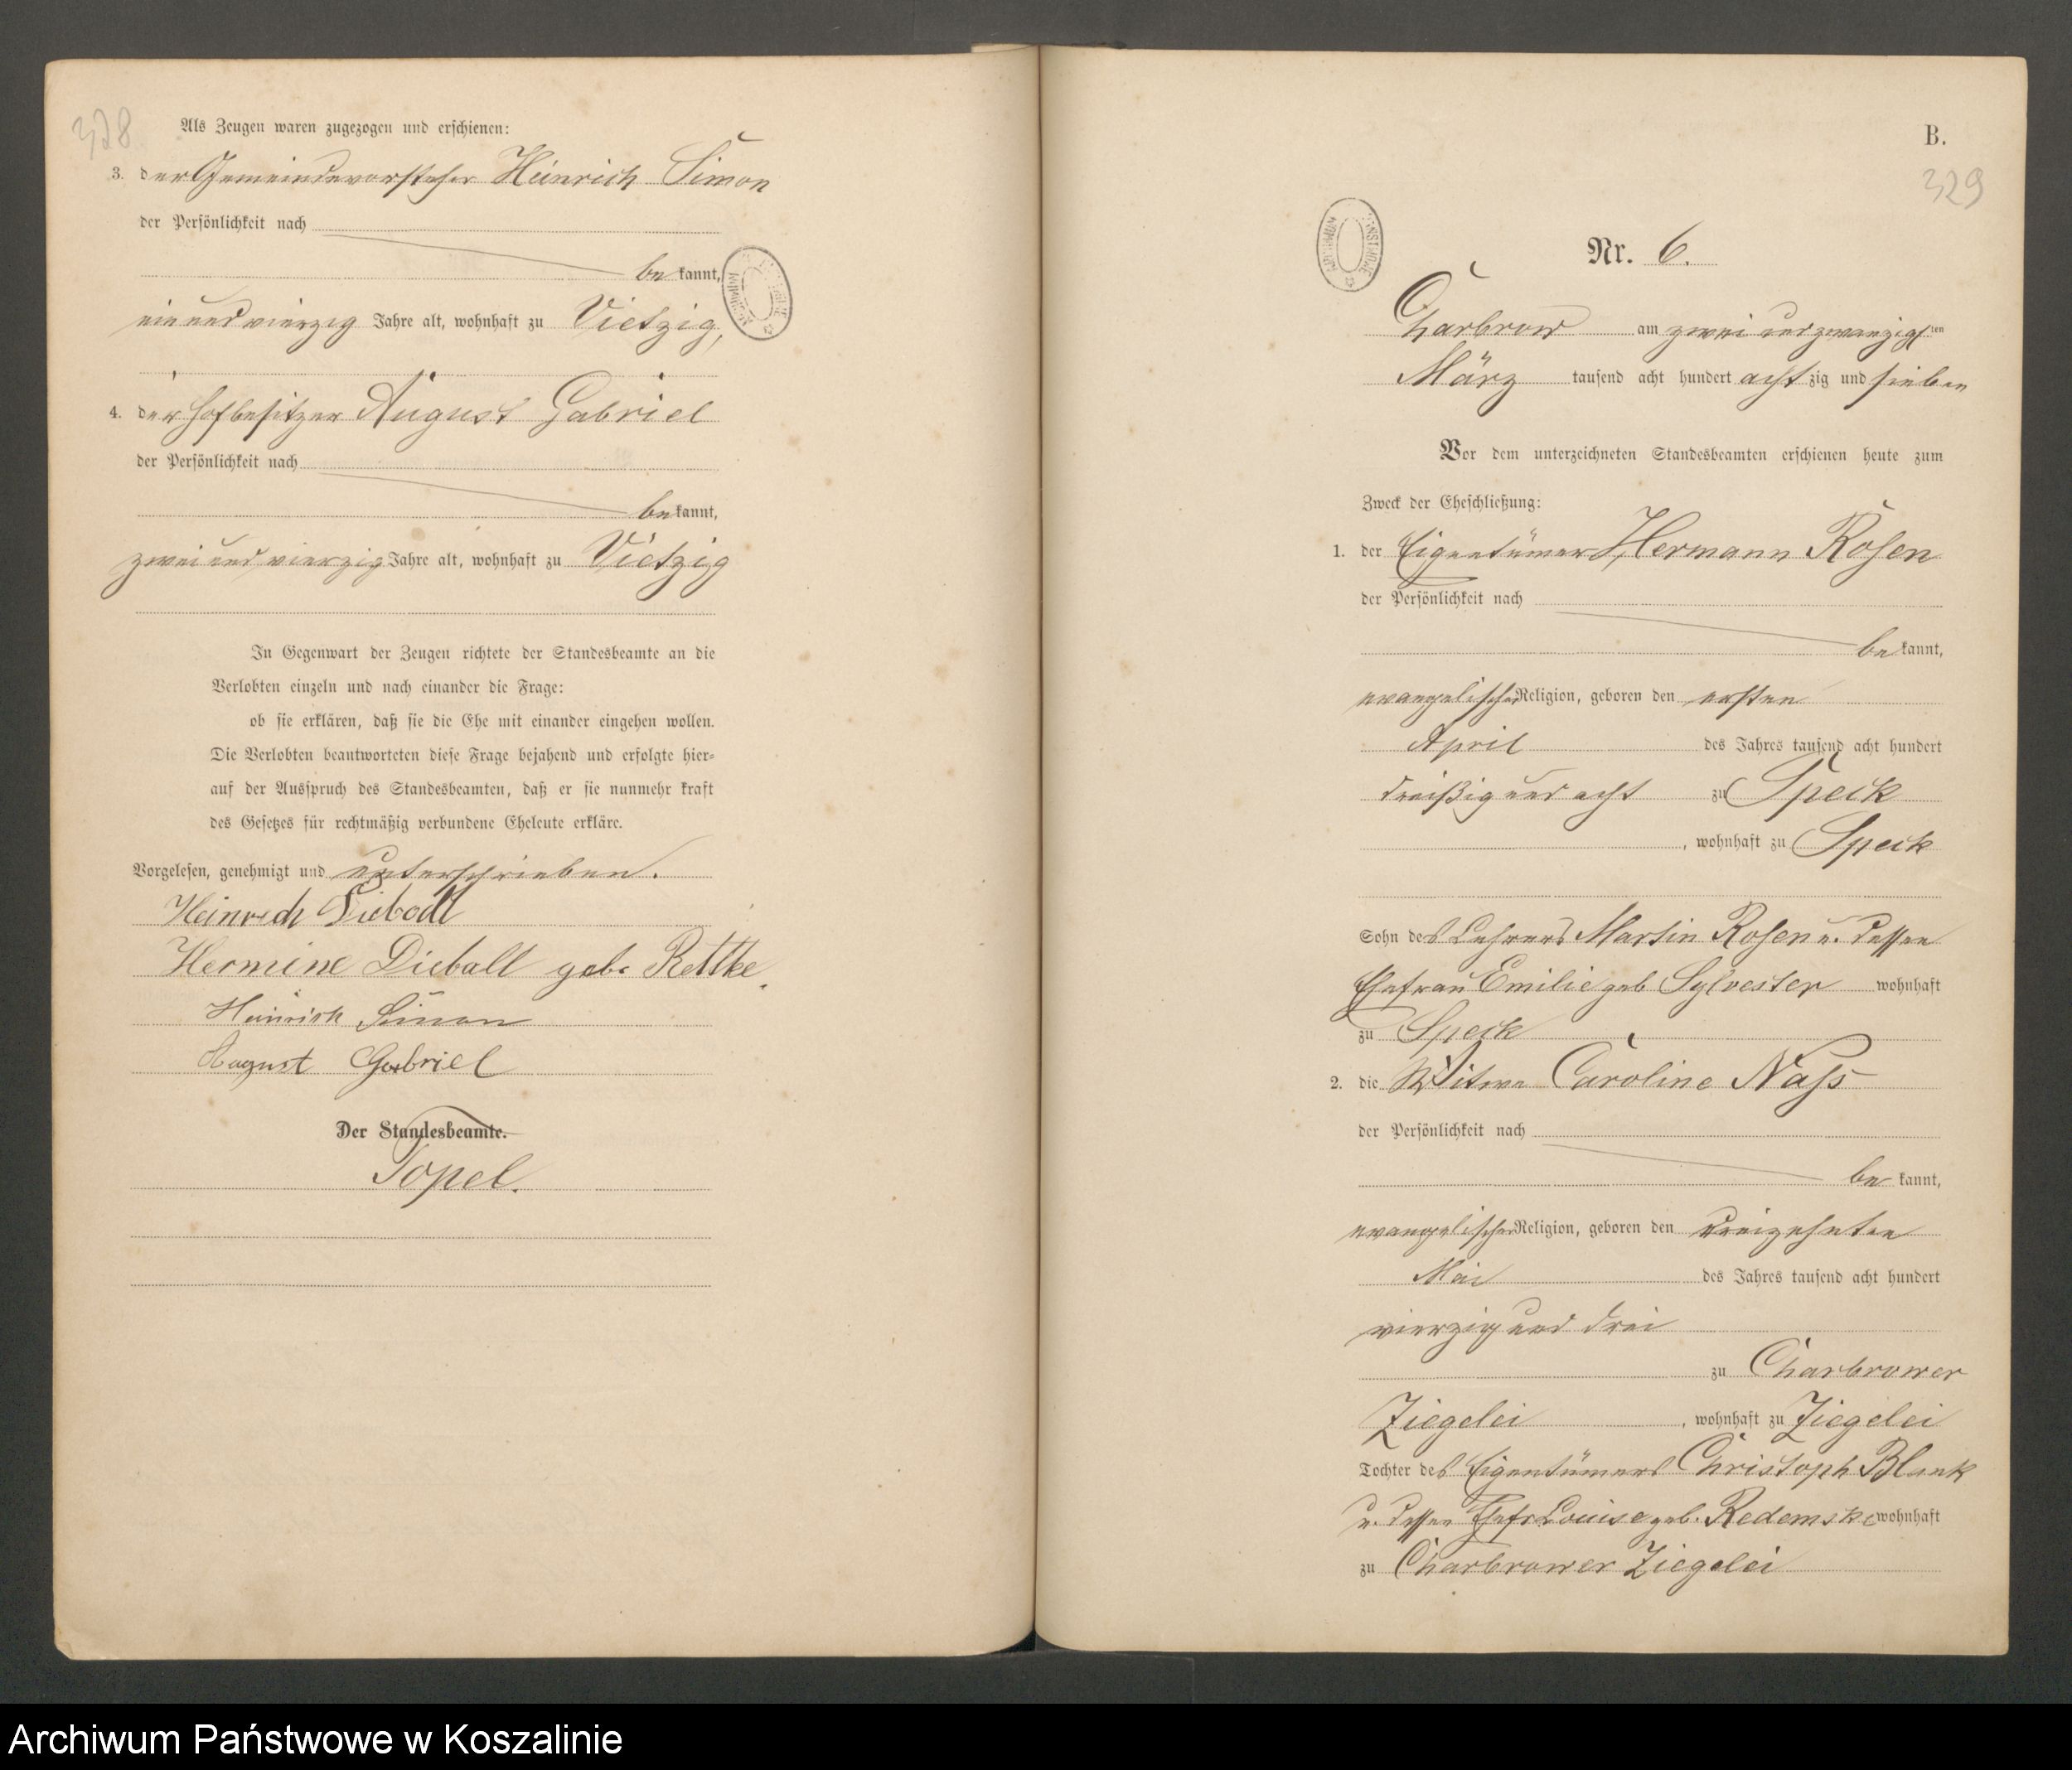 328
Als Zeugen waren zugezogen und erschienen:
3. der Gemeindevorsteher Heinrich Simon
der Persönlichkeit nach
be kannt,
ein und vierzig Jahre alt, wohnhaft zu Vietzig,
4. der Hofbesitzer August Gabriel
der Persönlichkeit nach
be kannt,
zwei und vierzig Jahre alt, wohnhaft zu Vietzig
In Gegenwart der Zeugen richtete der Standesbeamte an die
Verlobten einzeln und nach einander die Frage:
ob sie erklären, daß sie die Ehe mit einander eingehen wollen.
Die Verlobten beantworteten diese Frage bejahend und erfolgte hier-
auf der Ausspruch des Standesbeamten, daß er sie nunmehr kraft
des Gesetzes für rechtmäßig verbundene Eheleute erkläre.
Vorgelesen, genehmigt und unterschrieben.
Heinrich
Hermine Dieball geb. Rettke.
Heinrich Simon
August Gabriel
Der Standesbeamte.
Topel.
B.
329
Nr. 6.
Charbrow am zwei und zwanzigsten
März tausend acht hundert achtzig und sieben
Vor dem unterzeichneten Standesbeamten erschienen heute zum
Zweck der Eheschließung:
1. der Eigentümer Hermann Rosen
der Persönlichkeit nach
be kannt,
evangelischer Religion, geboren den ersten
April des Jahres tausend acht hundert
dreißig und acht zu Speck
, wohnhaft zu Speck
Sohn des Lehrers Martin Rosen u. dessen
Ehefrau Emilie geb Sylvester wohnhaft
zu Speck
2. die Witwe Caroline Nass
der Persönlichkeit nach
be kannt,
evangelischer Religion, geboren den dreizehnten
Mai des Jahres tausend acht hundert
vierzig und drei
zu Charbrower
Ziegelei , wohnhaft zu Ziegelei
Tochter des Eigentümers Christoph Blank
u. dessen Ehefr. Louise geb. Redemske wohnhaft
zu Charbrower Ziegelei
Archiwum Państwowe w Koszalinie